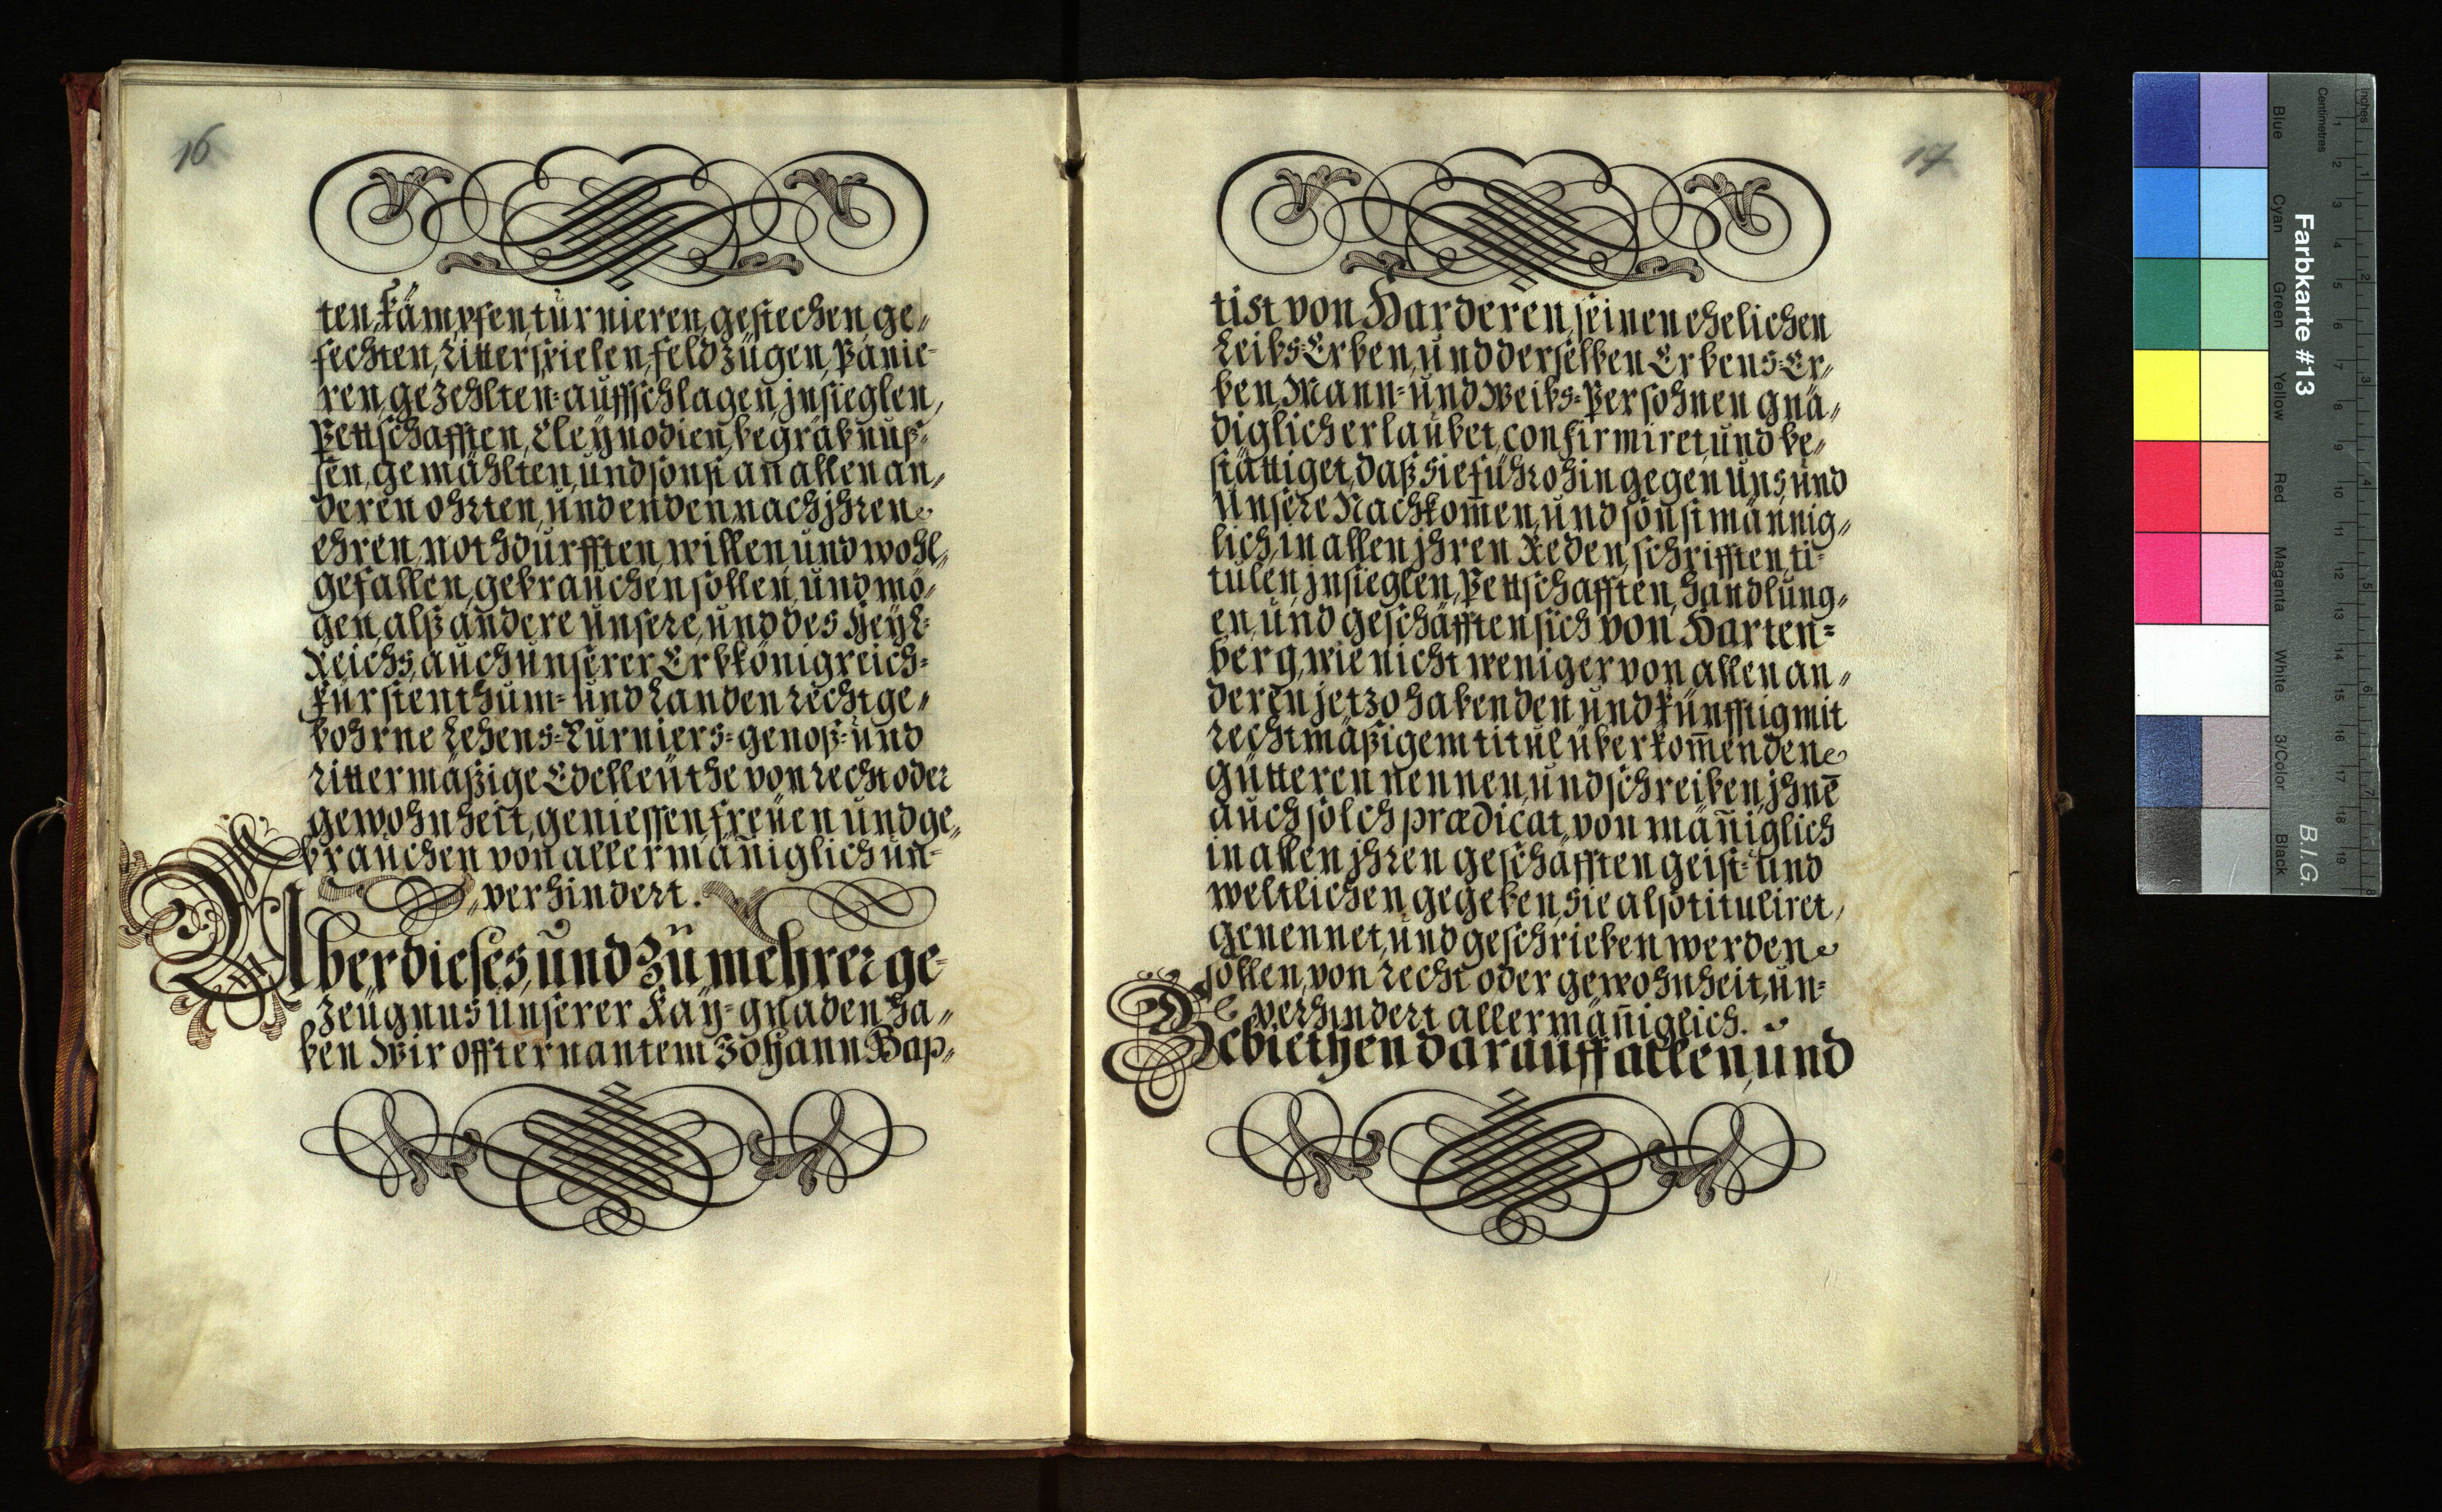 16
ten, kämpfen, turnieren, gestechen, ge„
fechten, Ritterspielen, feldzügen, Panie-
ren, gezehlten-auffschlagen, jnsieglen,
Pettschafften, Cleynodien, begräbnuß-
sen, gemählten, und sonst an allen an„
deren ohrten, und enden nach jhren
ehren, nothdurfften, willen, und wohl„
gefallen, gebrauchen sollen, und mö„
gen, alß andere unsere, und des Heyl:
Reichs, auch unserer Erbkönigreich-
fürstenthum- und Landen recht ge„
bohrne Lehens-Turniers-genoß- und
rittermäßige Edelleüthe von recht oder
gewohnheit, geniessen, freüen und ge„
brauchen von allermäñiglich un-
„verhindert.
Uber dieses, und zu mehrer ge-
zeügnus unserer Kay- gnaden ha„
ben Wir offternantem Johann Bap„
17
tist von Harderen, seinen ehelichen
Leibs-Erben, und derselben Erbens-Er„
ben, Mann- und Weibs-Persohnen gnä„
diglich erlaubet, confirmiret, und be„
stättiget, daß sie führohin gegen uns, und
Unsere Nachkom̃en, und sonst männig„
lich, in allen jhren Reden, schrifften, ti-
tulen, jnsieglen, Pettschafften, handlung„
en, und geschäfften sich von Harten-
berg, wie nicht weniger von allen an„
deren jetzo habenden und künfftig mit
rechtmäßigem titul überkom̃enden
gütteren nennen, und schreiben, jhnẽ
auch solch prædicat, von mäñiglich
in allen jhren geschäfften geist- und
weltlichen gegeben, sie also tituliret,
genennet, und geschrieben werden
sollen, von recht oder gewohnheit, un-
verhindert allermäñiglich.
Gebiethen darauff allen, und
Inches
Centimetres
Blue
Cyan
Green
Yellow
Red
Magenta
White
3/Color
Black
Farbkarte #13
B.I.G.